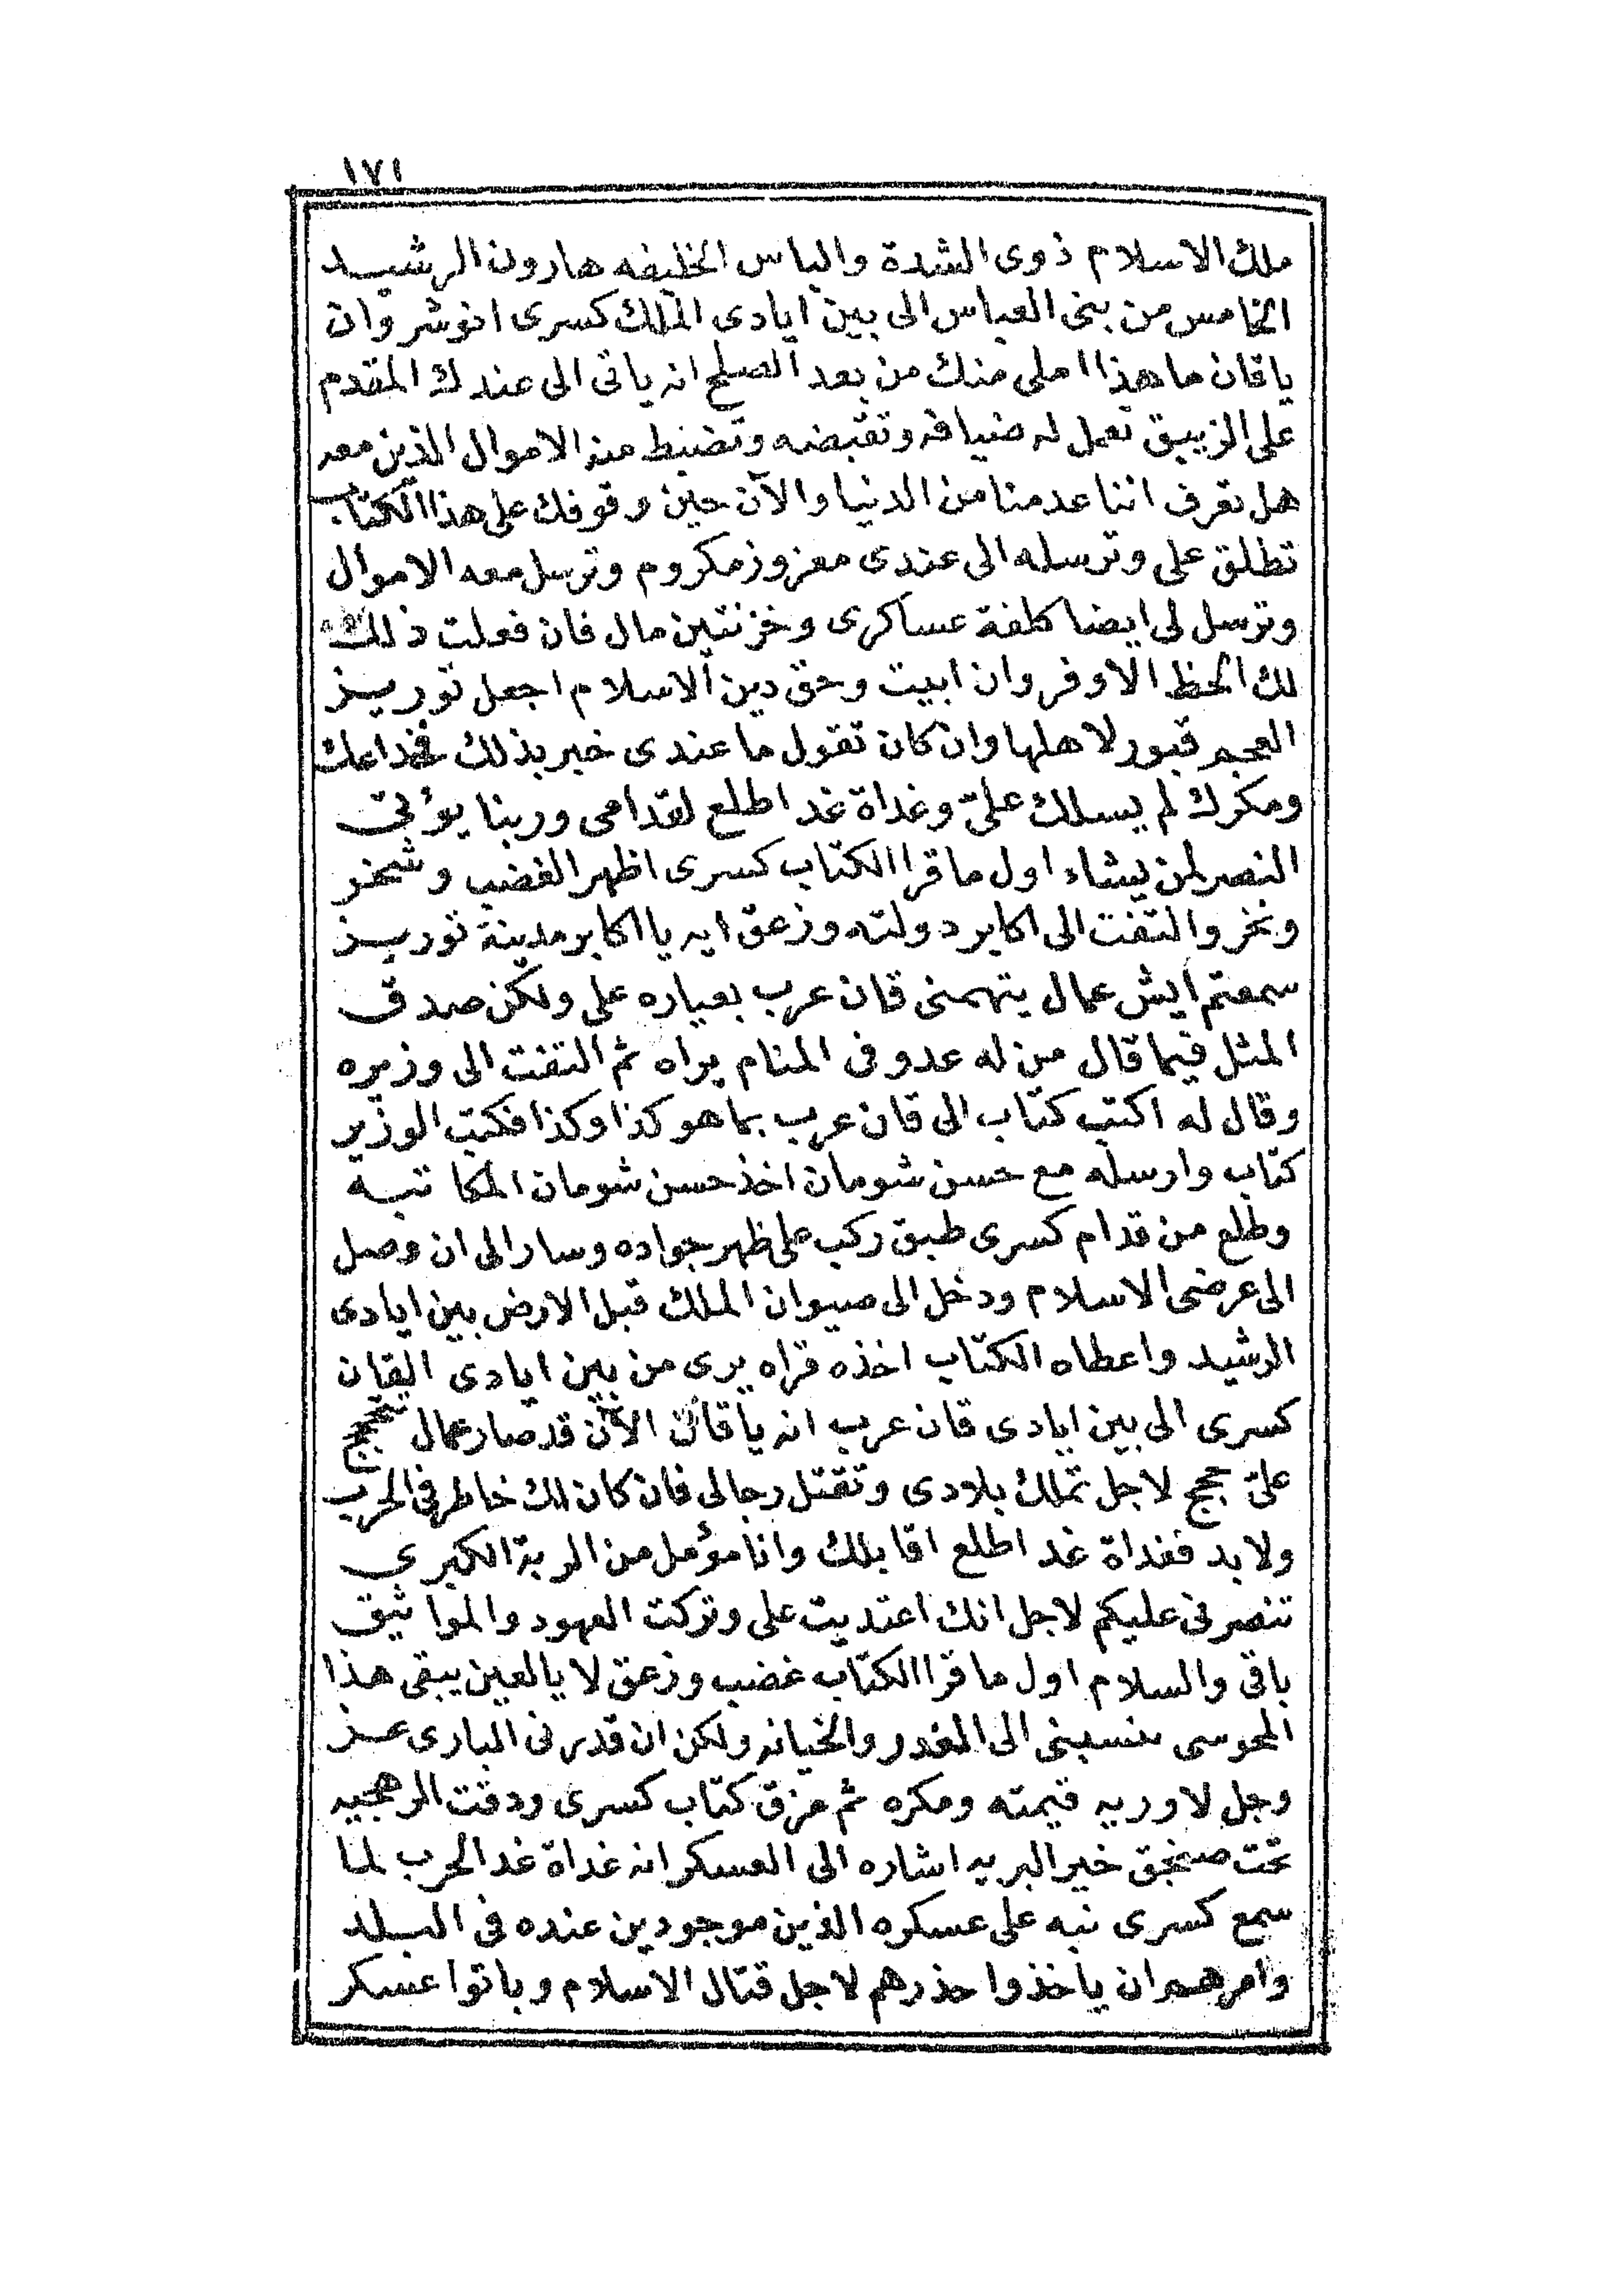 ١٧١
ملك الاسلام ذوى الشدة والباس الخليفه هارون الرشيد
الخامس من بنى العباس الى بين ايادى الملك كسرى انوشروان
ياقان ما هذا املى منك من بعد الصلح انه ياتى الى عندك المقدم
على الزيبق تعمل له ضيافه وتقبضه وتضبط منه الاموال الذين معه
هل تعرف اننا عدمنا من الدنيا والآن حين وقوفك على هذا الكتاب
تطلق على وترسله الى عندى معزوز مكروم وترسل معه الاموال
وترسل لى ايضا كلفة عساكرى وخزنتين مال فان فعلت ذلك
لك الحظ الاوفر وان ابيت وحق دين الاسلام اجعل توريز
العجم قبور لاهلها وان كان تقول ما عندى خبر بذلك فخداعك
ومكرك لم يسلك علىّ وغداة غد اطلع لقدامى وربنا يؤتى
النصر لمن يشاء اول ما قرا الكتاب كسرى اظهر الغضب وشخر
ونخر والتفت الى اكابر دولته وزعق ايه يا اكابر مدينة توريز
سمعتم ايش عمال يتهمنى قان عرب بعياره على ولكن صدق
المثل فيما قال من له عدو فى المنام يراه ثم التفت الى وزيره
وقال له اكتب كتاب الى قان عرب بما هو كذا وكذا فكتب الوزير
كتاب وارسله مع حسن شومان اخذ حسن شومان المكاتبه
وطلع من قدام كسرى طبق ركب على ظهر جواده وسار الى ان وصل
الى عرضى الاسلام ودخل الى صيوان الملك قبل الارض بين ايادى
الرشيد واعطاه الكتاب اخذه قراه يرى من بين ايادى القان
كسرى الى بين ايادى قان عرب انه ياقان الآن قد صار عمال تتحجج
علىّ حجج لاجل تملك بلادى وتقتل رجالى فان كان لك خاطر فى الحرب
ولابد فغداة غد اطلع اقابلك وانا مؤمل من الربة الكبرى
تنصرنى عليكم لاجل انك اعتديت على وتركت العهود والمواثيق
باقى والسلام اول ما قرا الكتاب غضب وزعق لا يالعين يبقى هذا
المجوسى ينسبنى الى الغدر والخيانه ولكن ان قدرنى البارى عز
وجل لاوريه قيمته ومكره ثم مزق كتاب كسرى ودقت الرهجيه
تحت صنجق خير البريه اشاره الى العسكر انه غداة غد الحرب لما
سمع كسرى نبه على عسكره الذين موجودين عنده فى البلد
وامرهم ان ياخذوا حذرهم لاجل قتال الاسلام وباتوا عسكر